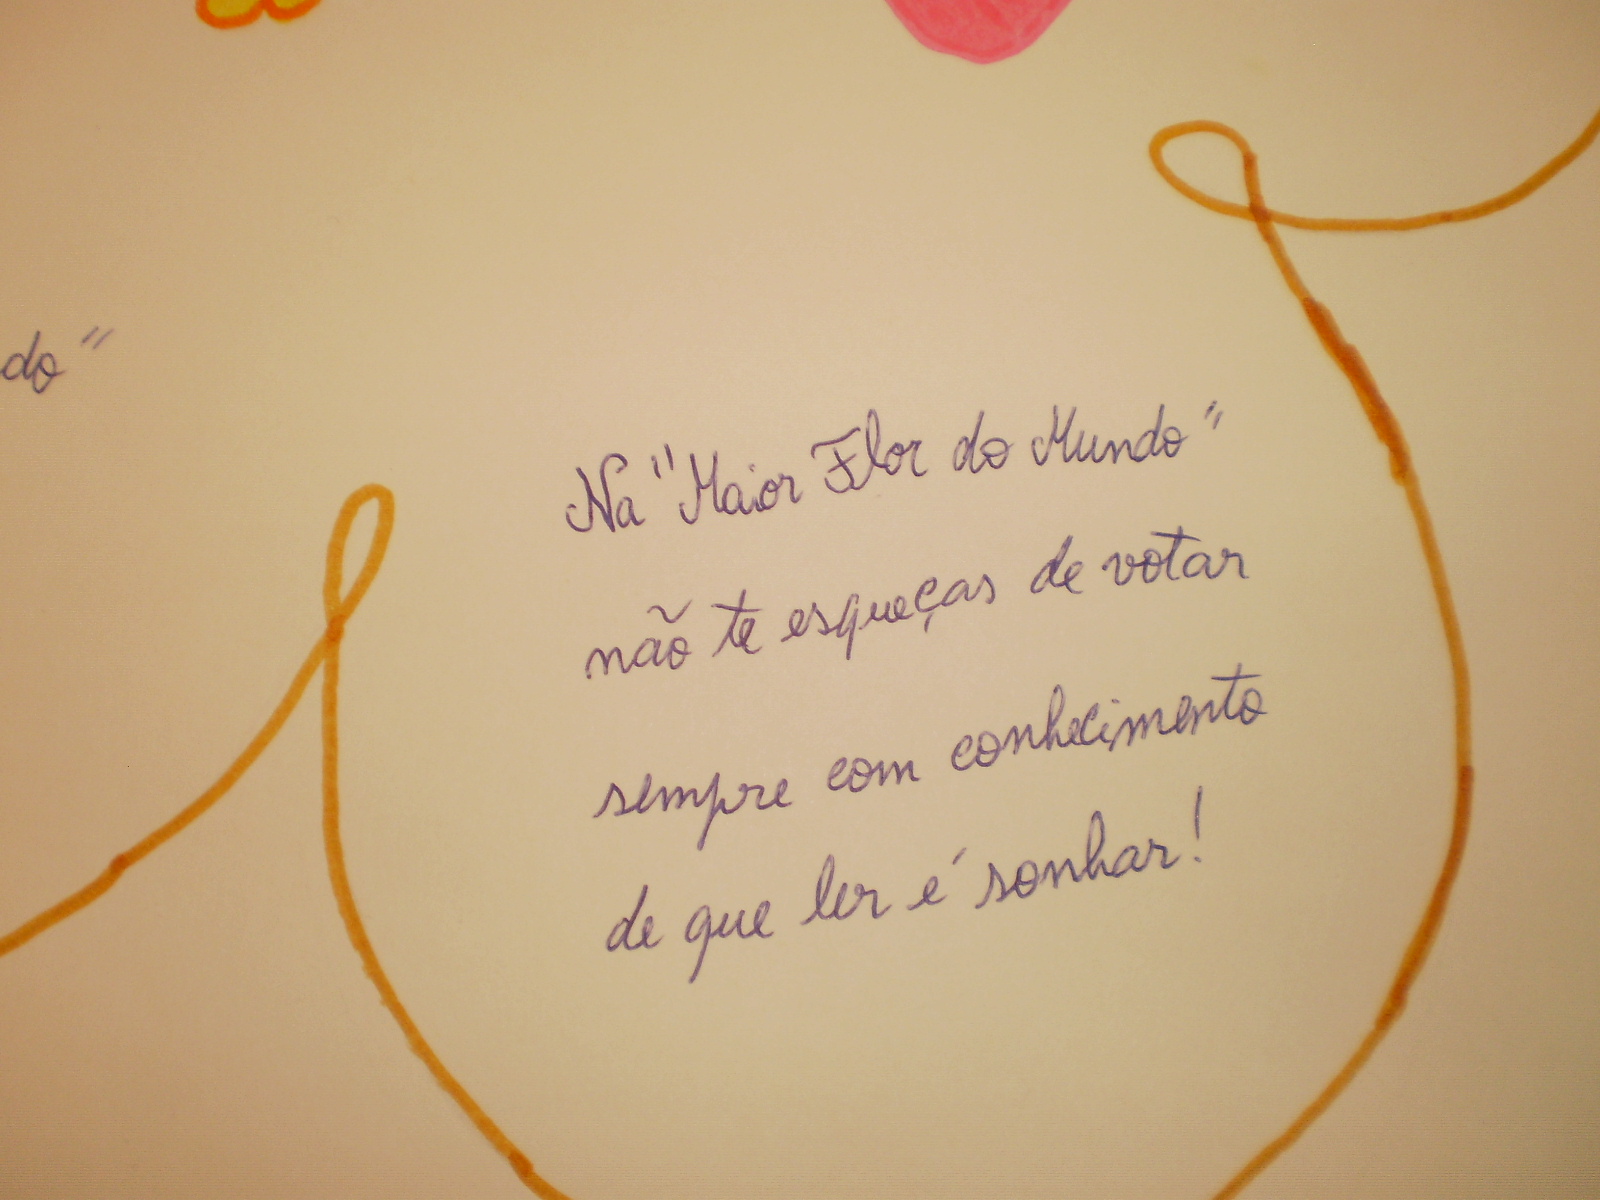 do"
Na "Maior Flor do Mundo"
não te esqueças de votar
sempre com conhecimento
de que ler é sonhar!